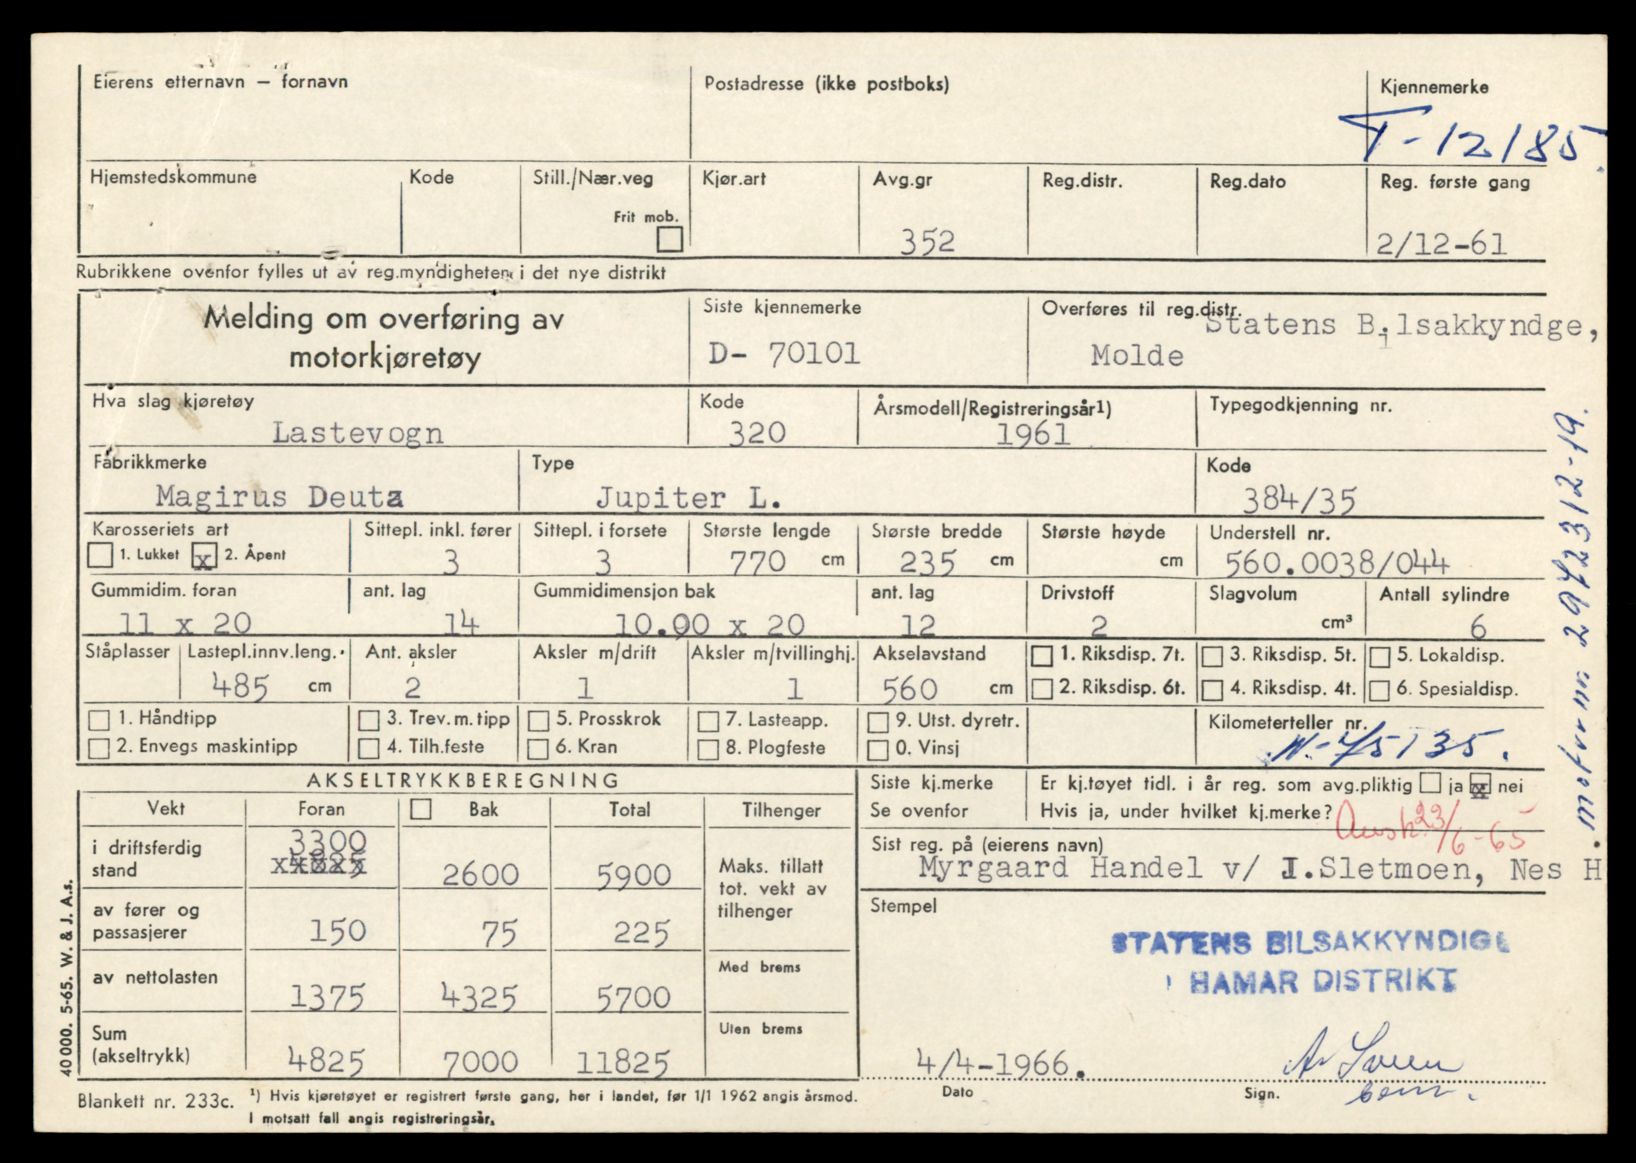 Eierens etternavn — fornavn
Postadresse (ikke postboks)
Kjennemerke
T-12185.
Hjemstedskommune
Kode
Still./Nær.veg
Frit mob.
Kjør.art
Avg.gr
352
Reg.distr.
Reg.dato
Reg. første gang
2/12-61
Rubrikkene ovenfor fylles ut av reg.myndigheten i det nye distrikt
Melding om overføring av
motorkjøretøy
Siste kjennemerke
D- 70101
Overføres til reg.distr.
Statens Bilsakkyndge,
Molde
Hva slag kjøretøy
Lastevogn
Kode
320
Årsmodell/Registreringsår1)
1961
Typegodkjenning nr.
Fabrikkmerke
Magirus Deutz
Type
Jupiter L.
Kode
384/35
Karosseriets art
1. Lukket x 2. Åpent
Sittepl. inkl. fører
3
Sittepl. i forsete
3
Største lengde
770 cm
Største bredde
235 cm
Største høyde
cm
Understell nr.
560.0038/044
Gummidim. foran
11 x 20
ant. lag
14
Gummidimensjon bak
10.00 x 20
ant. lag
12
Drivstoff
2
Slagvolum
cm³
Antall sylindre
6
Ståplasser
Lastepl.innv.leng.
485 cm
Ant. aksler
2
Aksler m/drift
1
Aksler m/tvillinghj.
1
Akselavstand
560 cm
1. Riksdisp. 7t.
3. Riksdisp. 5t.
5. Lokaldisp.
2. Riksdisp. 6t.
4. Riksdisp. 4t.
6. Spesialdisp.
1. Håndtipp
3. Trev. m. tipp
5. Prosskrok
7. Lasteapp.
9. Utst. dyretr.
2. Envegs maskintipp
4. Tilh.feste
6. Kran
8. Plogfeste
0. Vinsj
Kilometerteller nr.
motorna 2972312-19.
AKSELTRYKKBEREGNING
Vekt
Foran
Bak
Total
Tilhenger
i driftsferdig
stand
3300
2600
5900
Maks. tillatt
tot. vekt av
tilhenger
av fører og
passasjerer
150
75
225
av nettolasten
1375
4325
5700
Med brems
Sum
(akseltrykk)
4825
7000
11825
Uten brems
Siste kj.merke
Se ovenfor
Er kj.tøyet tidl. i år reg. som avg.pliktig ja x nei
Hvis ja, under hvilket kj.merke?
23/6-65
Sist reg. på (eierens navn)
Myrgaard Handel v/ I.Sletmoen, Nes H
Stempel
STATENS BILSAKKYNDIGE
I HAMAR DISTRIKT
4/4-1966.
Dato
Sign.
40000. 5-65. W. & J. A.s.
Blankett nr. 233c.
1) Hvis kjøretøyet er registrert første gang, her i landet, før 1/1 1962 angis årsmod.
I motsatt fall angis registreringsår.